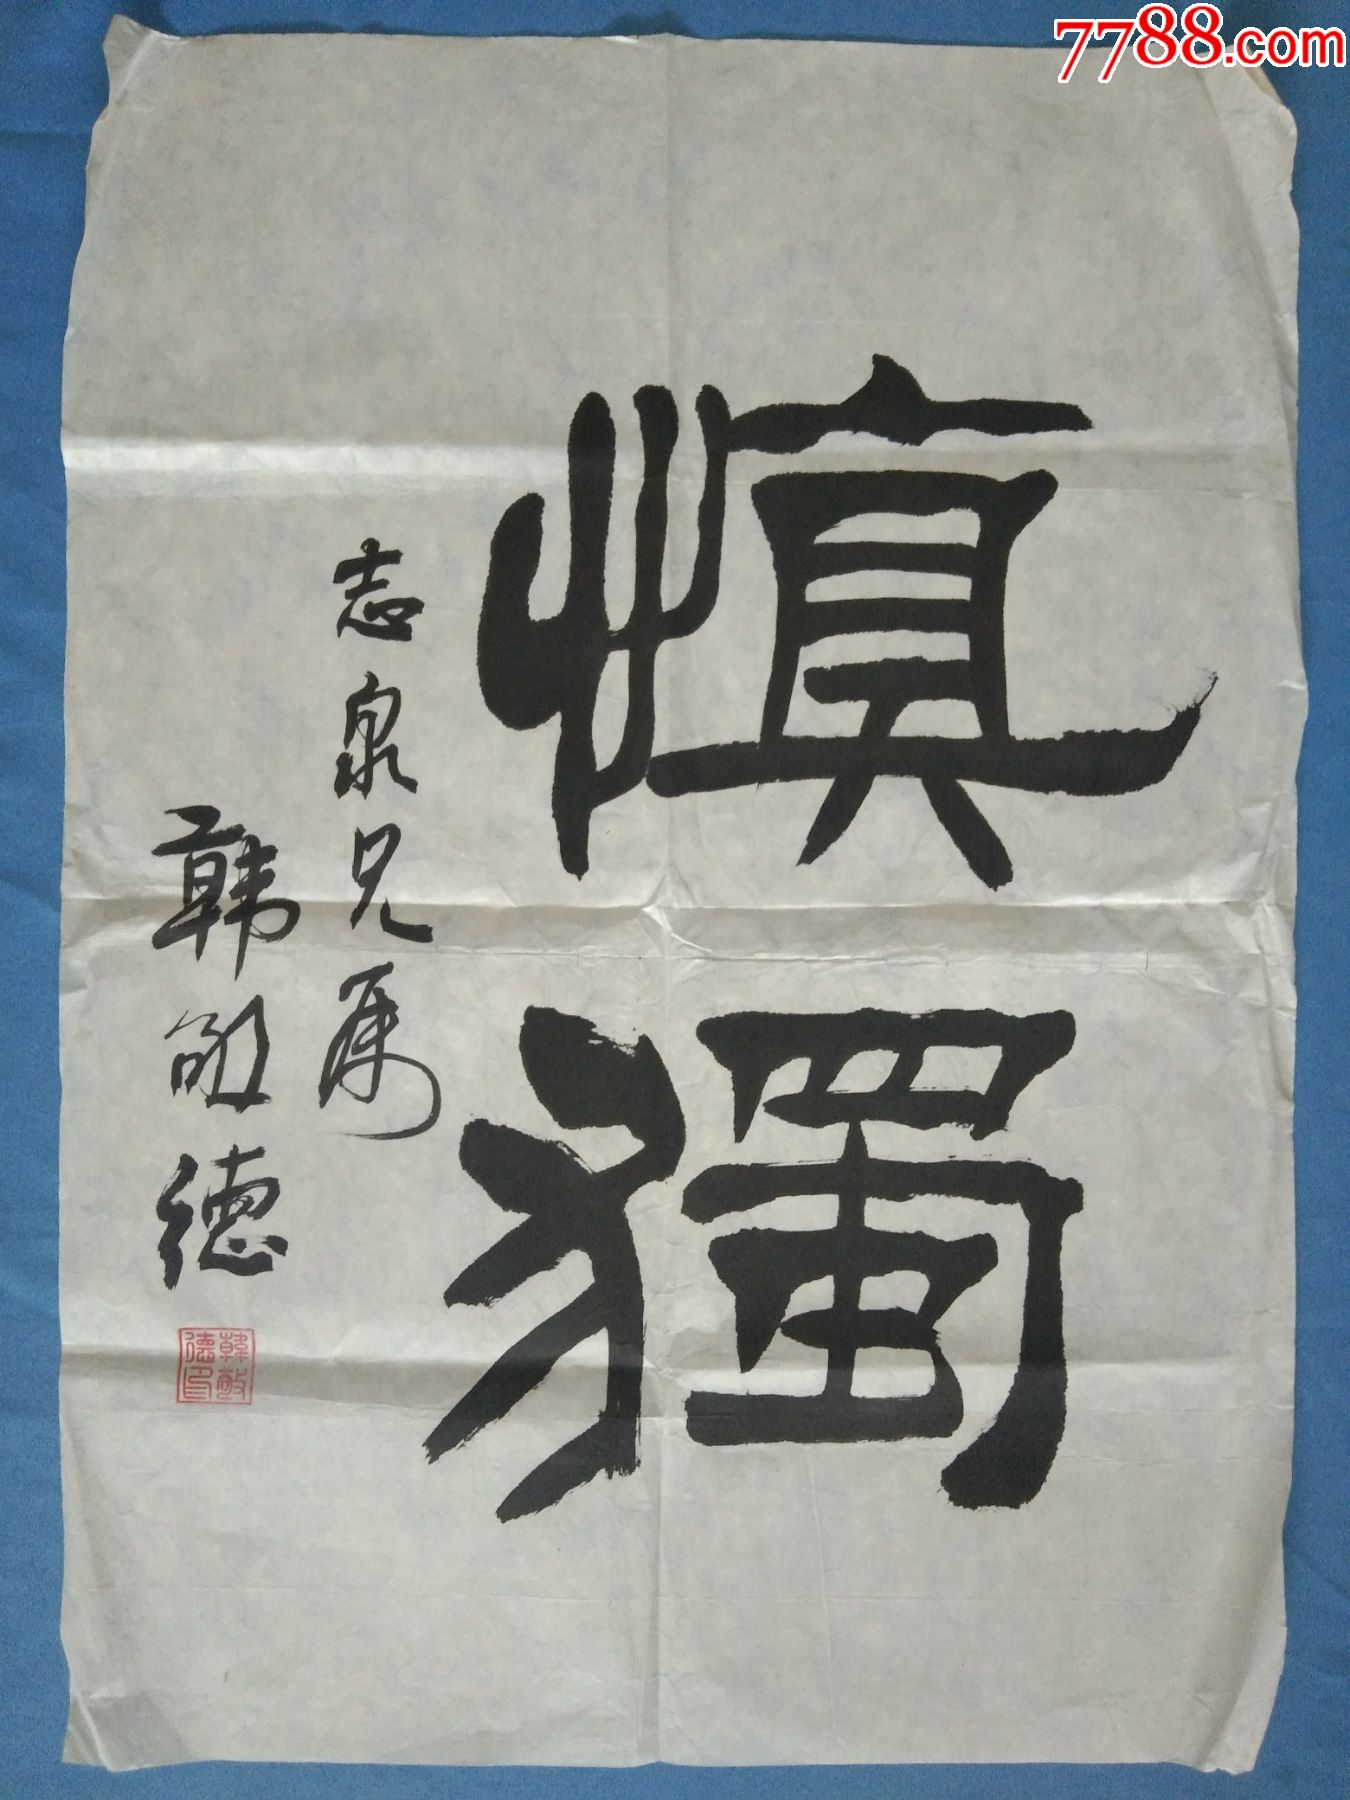 7788.com
慎獨
志泉兄属
韩敬德
韓敬德印